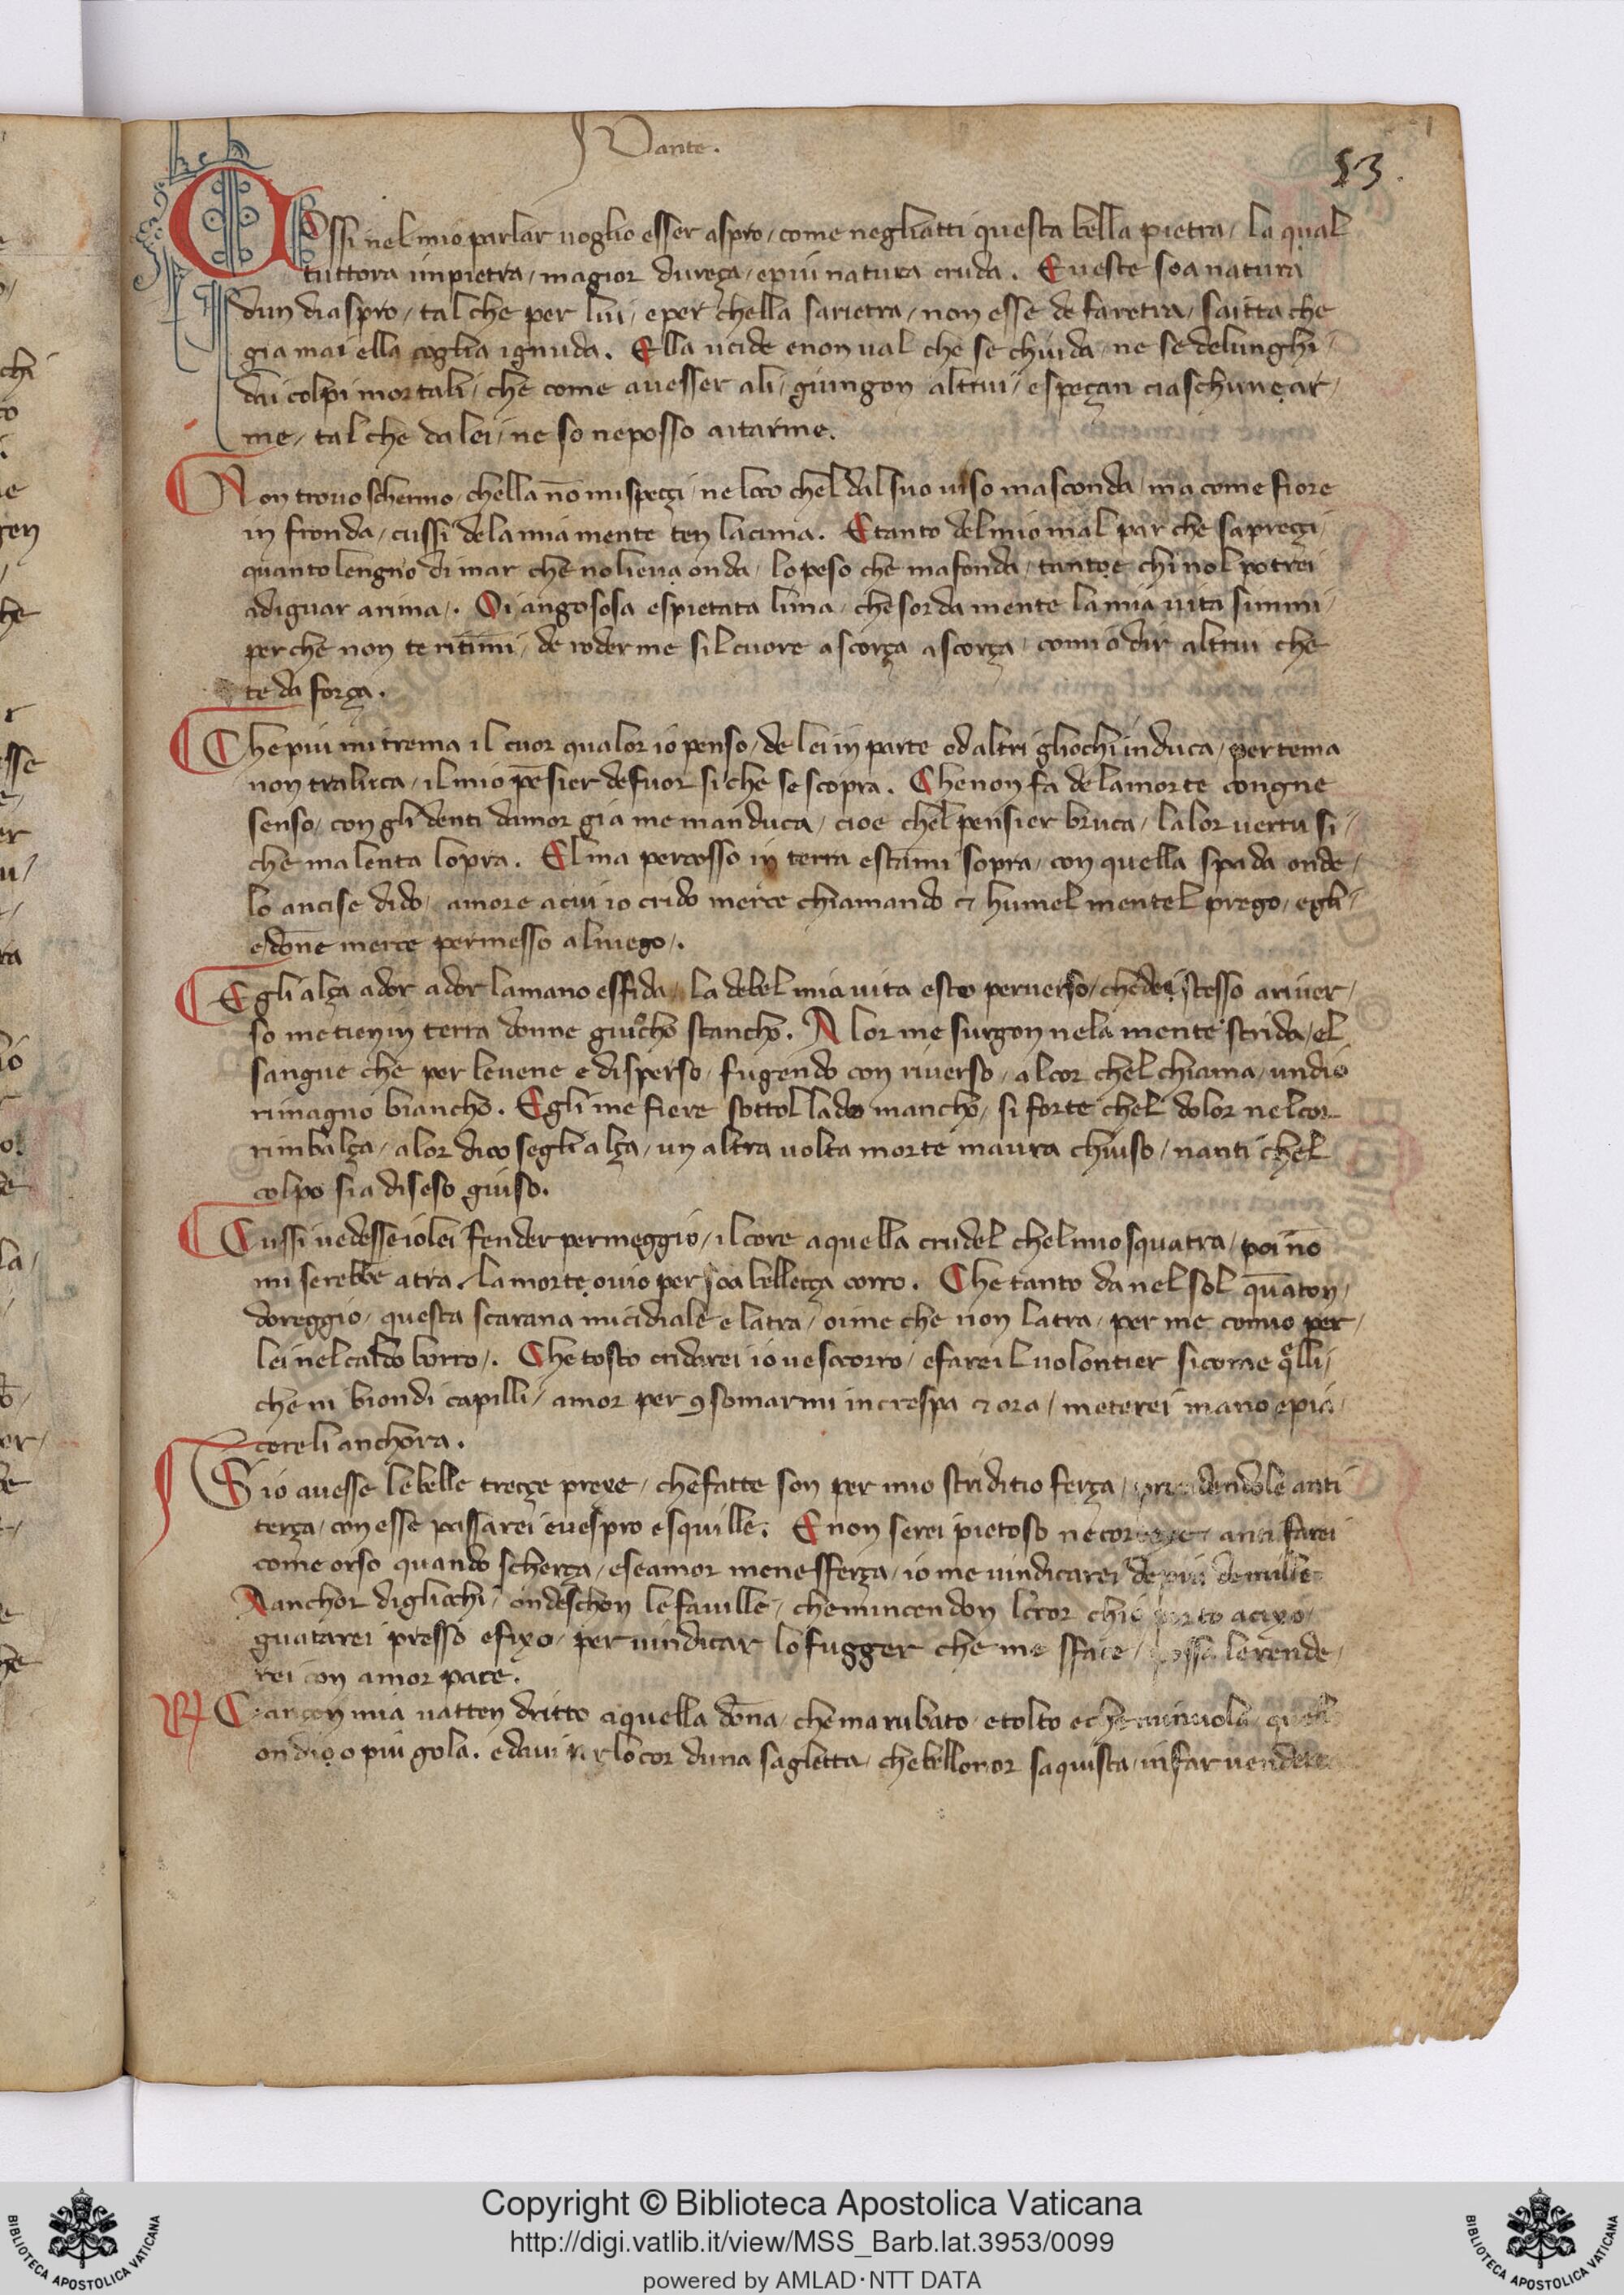 Dante.
53.
COssi nel mio parlar uoglio esser aspro / come negliatti questa bella pietra / la qual
tuttora inpietra / magior dureça / epiu natura cruda. Eueste soa natura
dun diaspro / tal che per lui / e per chella sarietra / non esse de faretra / saitta che
gia mai ella coglia ignuda. Ella ucide enon ual che se chiuda / ne se delunghi /
dai colpi mortali / che come auesser ali / giungon altrui / espeçan ciaschun ear /
me / tal che da lei / ne so ne posso aitarme.
Non trouo schermo / chella nō mi speççi / ne loco chel dal suo uiso masconda / ma come fiore
in fronda / cussi dela mia mente ten lacima. Etanto del mio mal par che sapreçi /
quanto lengno di mar che no lieua onda / lo peso che mafonda / tanto e chi nol potrei
adiguar arima /. Oi angososa espietata lima / che sorda mente la mia uita summi /
per che non te ritimi / de roder me sil cuore ascorça ascorça / comio dir altrui che
te da força.
Che piu mi trema il cuor qualor io penso / de lei in parte od altri gliochi induca / per tema
non traluca / il mio pēsier de fuor si che se scopra. Che non fa de la morte congne
senso / con gli denti damor gia me manduca / cioe chel pensier bruca / la lor uertu si /
che malenta lopra. El ma percosso in terra estami sopra / con quella spada onde /
lo ancise dido / amore acui io crido merce chiamando & humel mentel prego / egli /
e dōne merce permesso al niego /.
Egli alça ador ador lamano esfida / la debel mia uita esto peruerso / che desstesso ariuer /
so me tien in terra donne guicho stancho. Alor me surgon nela mente strida / el
sangue che per leuene e disperso / fugendo con riuerso / alcor chel chiama / undio
rimagno biancho. Egli me fiere sottol lado mancho / si forte chel dolor nel cor
rimbalça / alor dico segli alça / un altra uolta morte maura chiuso / nanti chel
colpo sia diseso giuso.
Cussi uedesse io lei fender per meggio / il core aquella crudel chel mio squatra / poi nō
mi serebbe atra / la morte ouio per soa belleçça corro. Che tanto da nel sol quāton /
doreggio / questa scarana micidiale e latra / oime che non latra / per me comio per /
lei nel caldo borro /. Che tosto cridarei io ue scorro / efarei l uolontier sicome qlli /
che ni biondi capilli / amor per 9somarmi increspa & ora / meterei mano epia /
cereli anchora.
Sio auesse le belle treçe prese / che fatte son per mio striditio ferça / prendendole anti
terça / con esse passarei euespro esquille. E non serei pietoso ne cortese / anci farei
come orso quando scherça / ese amor mene sferça / io me uindicarei de piu de mille
Aanchor digliochi / ondeschon le fauille / che mincendon lo cor chio porto aciso
guatarei presso efixo / per uindicar lo fugger che me sface / possa lerende /
rei con amor pace.
Cançon mia uatten dritto aquella dōna / che ma rubato etolto e che minuola quel
ondio o piu gola. edaui per lo cor duna sagletta / che bellonor saquista in far uendetta
Copyright © Biblioteca Apostolica Vaticana
http://digi.vatlib.it/view/MSS_Barb.lat.3953/0099
powered by AMLAD·NTT DATA
BIBLIOTECA APOSTOLICA VATICANA
BIBLIOTECA APOSTOLICA VATICANA